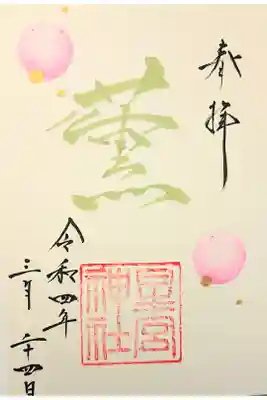 奉拝
薫
星宮
神社
令和四年
三月二十四日